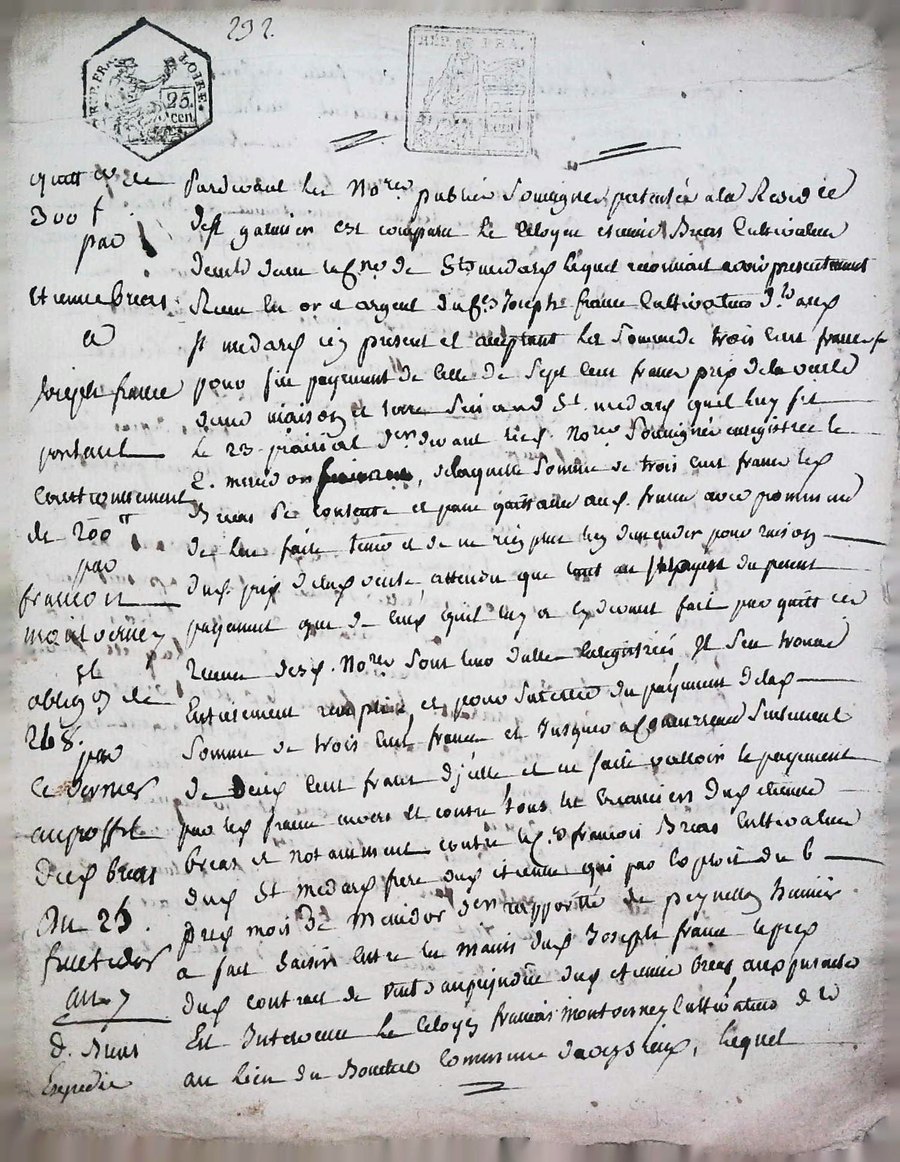 292.
REP. FRA. LOIRE.
25. cen.
REP. FRA.
25 cen
quitt ce de
300 f
par
Etienne breas
a
Joseph france
portant
Cautionnement
de 200 tt
par
francois
montverney
et
oblig on de
268.
par
ce dernier
au proffit
dud breas
du 25.
fructidor
an 7
d. Breas
Expedié
Pardevant les No res publics Soussignés patentés a la Resid ce
de st galmier est comparu le Citoyen etienne Breas Cultivateur
dem t dans la C ne de St medard lequel reconnait avoir presentement
Receu en or et argent du C en Joseph france Cultivateur d t aud
st medard icy present et acceptant la Somme de trois cent francs
pour fin payement de celle de Sept cent francs prix de la vente
d'une maison et terre Sis aud St. medard quil luy fit
le 23 prairial d er devant lesd. No res Soussignés enregistrée le
2. messidor, de laquelle Somme de trois cent francs led
Breas Se contente et quitte led. france avec promesse
de len faire tenir et de ne rien plus luy demander pour raison
dud. prix de lad vente attendu que tant au moyen du present
payement que de ceux quil luy a cy devant fait par quitt ces
Receues desd. No res Sont duement Enregistrées Il Sen trouve
Entierement rempli, et pour Sureté du payement de lad
Somme de trois cent francs et Jusques a Concurrence Seulement
de Deux cent francs d'icelle et en faire valloir le payement
par led france envers et contre tous les Creanciers dud etienne
breas et notamment contre le C en francois Breas Cultivateur
dud St medard frere dud etienne qui par exploit du 6
du mois de Messidor d er rapporté de peyneller huissier
a fait Saisir entre les mains dud Joseph france le prix
dud contrat de vente au prejudice dud etienne breas
Est Intervenu le Citoyen francois montverney Cultivateur
au lieu du Bouchet Commune, lequel